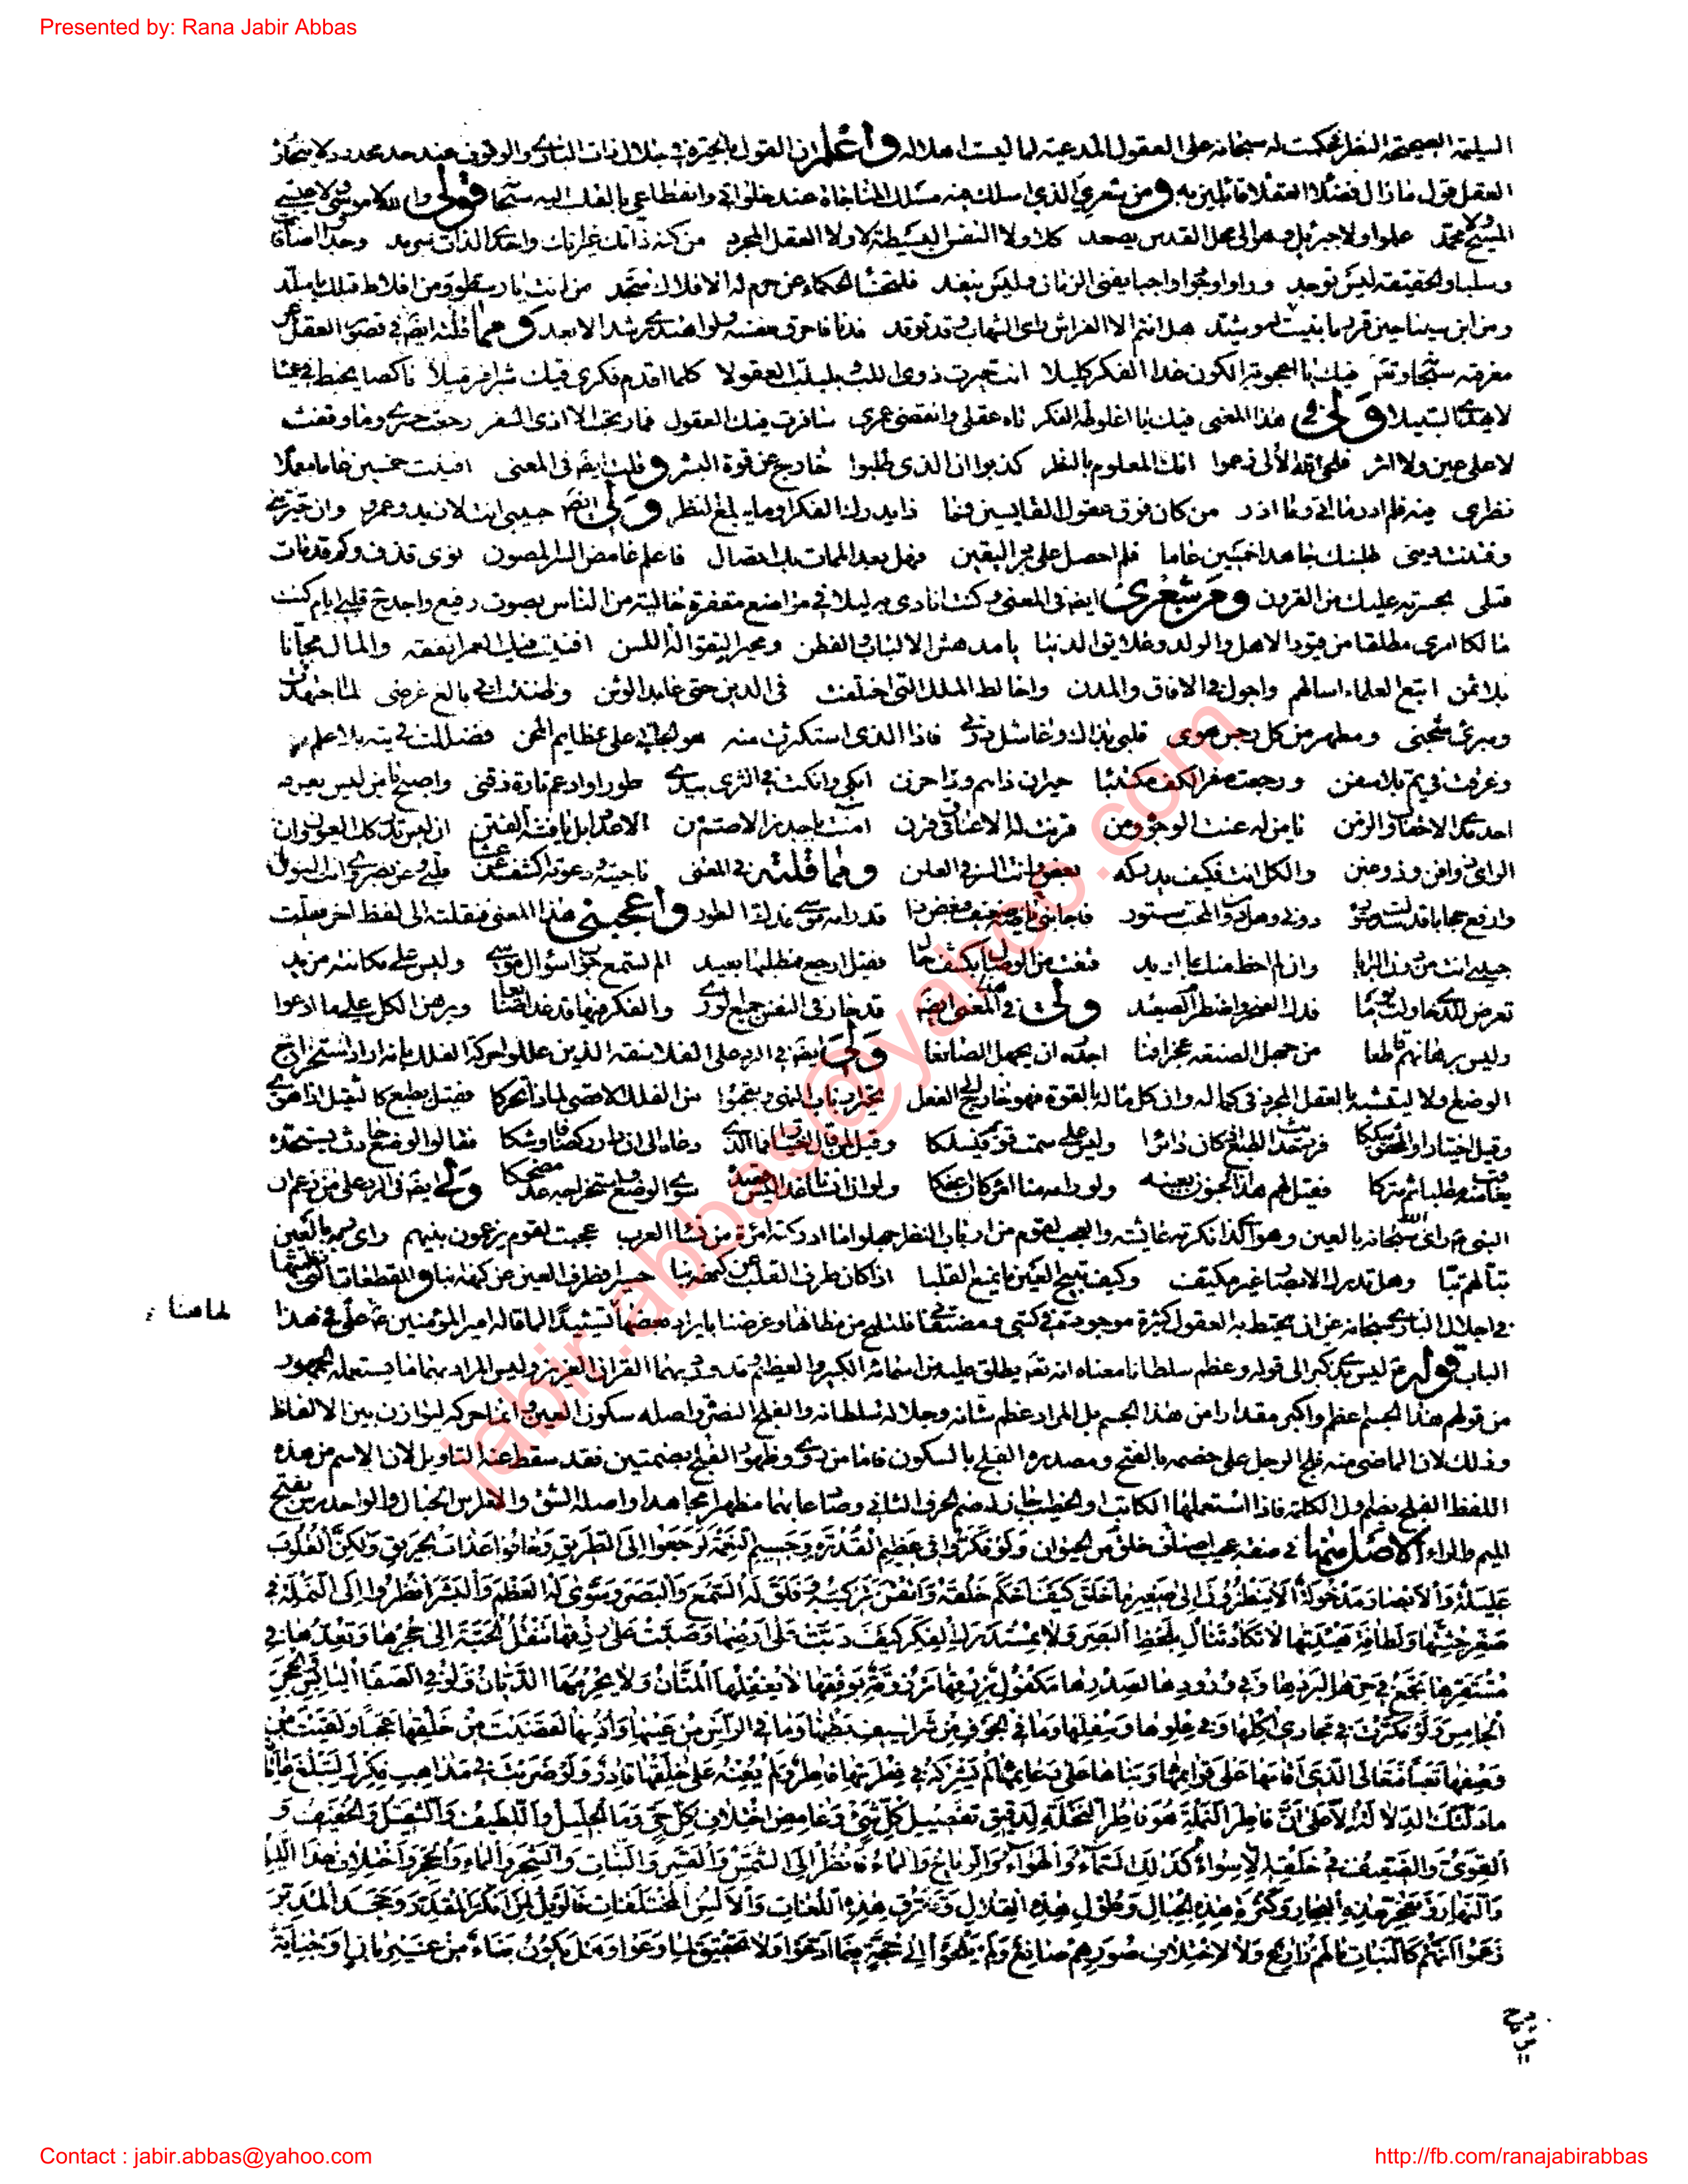 Presented by: Rana Jabir Abbas
السليمة الصحيحة النظر تحكمت له سبحانه على العقول المدعية لما ليست اهلا له واعلم ان القول بالحيرة في جلال ذات الباري والوقوف عند حد محدود لا يتجاوز
العقل قول ما زال فضلاء العقلاء قائلين به ومن شعري الذي اسلك فيه مسلك المناجاة عند خلواتي وانقطاعي بالقلب اليه سبحانه قولي والله لا موسى ولا عيسى
المسيح ولا محمد علموا ولا جبريل وهو الى محل القدس يصعد كلا ولا النفس البسيطة لا ولا العقل المجرد من كنه ذاتك غير انك واحدي الذات سرمد وجدوا اضافات
وسلبا والحقيقة ليس توجد وراوا وجودا واجبا يفنى الزمان وليس ينفد فلتخسأ الحكماء عن حرم له الافلاك تسجد من انت يا رسطو ومن افلاط قبلك يا مبلد
ومن ابن سينا حين قرر ما بنيت له وشيد هل انتم الا الفراش راى الشهاب وقد توقد فدنا فاحرق نفسه ولو اهتدى رشدا لابعد ومما قلته ايضا في قصور العقل عن
معرفته سبحانه وتعالى فيك يا اعجوبة الكون غدا الفكر كليلا انت حيرت ذوي اللب وبلبلت العقولا كلما اقدم فكري فيك شبرا فر ميلا ناكصا يخبط في عمياء
لا يهدى السبيلا ولي في هذا المعنى فيك يا اغلوطة الفكر تاه عقلي وانقضى عمري سافرت فيك العقول فما ربحت الا اذى السفر رجعت حسرى وما وقفت
لا على عين ولا اثر فلحى الله الألى زعموا انك المعلوم بالنظر كذبوا ان الذي طلبوا خارج عن قوة البشر وقلت ايضا في المعنى افنيت خمسين عاما معملا
نظري فيه فلم ادر ما اتي وما اذر من كان فوق عقول القايسين فما ذا يدرك الفكر او ما يبلغ النظر ولي ايضا حبيبي انت لا زيد وعمرو وان حيرتني
وفتنت ديني طلبتك جاهدا خمسين عاما فلم احصل على برد اليقين فهل بعد الممات بك اتصال فاعلم غامض السر المصون نوى قذف وكم قد مات
قبلي بحسرته عليك من القرون ومن شعري ايضا في المعنى وكنت انادي به ليلا في مواضع مقفرة خالية من الناس بصوت رفيع واجدح قلبي ايام كنت
مالكا امري مطلقا من قيود الاهل والولد وعلايق الدنيا يا مدهش الالباب والفطن ومحير التقوالة اللسن افنيت فيك العمر انفقه والمال مجانا
بلا ثمن اتتبع العلماء اسالهم واجول في الافاق والمدن واخالط الملل التي اختلفت في الدين حتى عابد الوثن وظننت اني بالغ غرضي لما اجتهدت
ومبرئ شجني ومطهر من كل رجس هوى قلبي بذاك وغاسل درني فاذا الذي استكثرت منه هو الجاني علي عظايم المحن فضللت في تيه بلا علم
وغرقت في يم بلا سفن ورجعت صفر الكف مكتئبا حيران ذا هم وذا حزن ابكي وانكت في الثرى بيدي طورا وادعم تارة ذقني واصيح يا من ليس يعرفه
احد مدى الاحقاب والزمن يا من له عنت الوجوه ومن قرنت له الاعناق في قرن امنت يا جذر الاصم من الاعداد بل يا فتنة الفتن ان ليس تدركك العيون وان
الراي ذو افن وذو غبن والكل انت فكيف يدركه بعض وانت السر في العلن ومما قلته في المعنى ناجيته ودعوته اكشف عن عشا قلبي وعن بصري وانت النور
وارفع حجابا قد سدلت ستوره دوني وهل دون المحب ستور فاجابني يا صاح مه ... قد رامه موسى فدك الطور واعجبني هذا المعنى فنقلته الى لفظ اخر فقلت
حبيبي انت من دون البرايا وان لم احظ منك بما اريد قنعت من الوصال بكشف حال فقيل ارجع فمطلبها بعيد الم تسمع جواب سؤال موسى وليس على مكانته مزيد
تعرض للذي حاولت يوما فدك الصخر واضطرب الصعيد ولي في المعنى ايضا قد حار في النفس جميع الورى والفكر فيها قد غدا ضائعا وبرهن الكل على ما ادعوا
وليس برهانهم قاطعا من جهل الصنعة عجزا فما اجدره ان يجهل الصانعا ولي ايضا في الرد على الفلاسفة الذين عللوا حركة الفلك بانه اراد استخراج
الوضع اولا ليتشبه بالعقل المجرد في كماله وان كل ما له بالقوة فهو خارج الى الفعل تحير ارباب النهى وتعجبوا من الفلك الاقصى لماذا تحركا فقيل بطبع كالثقيل اذا هوى
وقيل اختيارا والمحقق شككا فرد حديث الطبع اذ كان دائرا وليس على سمت قويم فيسلكا وقيل لمن قال اختيارا فما الذي دعاه الى ان دار ركضا فاوشكا فقالوا لوضع حادث يستجده
يعاقب منه مطلبا ثم متركا فقيل لهم هذا الجنون بعينه ولو رامه منا امرؤ كان اعفكا ولو ان انسانا غدا ليس قصده سوى الوضع واستخراجه عد مضحكا ولي ايضا في الرد على من زعم ان
النبي راى الله سبحانه بالعين وهو الذي انكرته عائشة والعجب لقوم من ارباب النظر جهلوا ما ادركته امراة من نساء العرب عجبت لقوم يزعمون نبيهم راى ربه بالعين
تبا لهم تبا وهل تدرك الابصار غير مكيف وكيف تبيح العين ما يمنع القلبا اذا كان طرف القلب عن كنهه نبا حسيرا فطرف العين عن كنهه نبا والمقطعات التي نظمتها
في اجلال الباري سبحانه عن ان تحيط به العقول كثيرة موجودة في كتبي ومصنفاتي فلتلمح من مظانها وغرضنا بايراد بعضها تشييدا لما قاله امير المؤمنين علي في هذا
لما هنا
الباب قوله ليس بذي كبر الى قوله وعظم سلطانا معناه انه تعالى يطلق عليه من اسمائه الكبير والعظيم وقد ورد بهما القران العزيز وليس المراد بهما ما يستعمله الجمهور
من قولهم هذا الجسم اعظم واكبر مقدارا من هذا الجسم بل المراد عظم شانه وجلالة سلطانه والفلج النصرة واصله سكون العين وانما حركه ليوازن بين الالفاظ
وذلك لان الماضي منه فلج الرجل على خصمه بالفتح ومصدره الفلج بالسكون فاما من روى وظهور الفلج بضمتين فقد سقط عنه التاويل لان الاسم من هذه
اللفظة الفلج بضم اول الكلمة فاذا استعملها الكاتب او الخطيب جاز له ضم الحرف الثاني وصادعا بهما مظهرا مجاهدا واصله الشق والامراس الحبال والواحد مرس بفتح
الميم والراء الاصل منها في صفة عجيب اصناف خلق من الحيوان ولو فكروا في عظيم القدرة وجسيم النعمة لرجعوا الى الطريق وخافوا عذاب الحريق ولكن القلوب
عليلة والابصار مدخولة الا ينظرون الى صغير ما خلق كيف احكم خلقه واتقن تركيبه وفلق له السمع والبصر وسوى له العظم والبشر انظروا الى النملة في
صغر جثتها ولطافة هيئتها لا تكاد تنال بلحظ البصر ولا بمستدرك الفكر كيف دبت على ارضها وصبت على رزقها تنقل الحبة الى جحرها وتعدها في
مستقرها تجمع في حرها لبردها وفي ورودها لصدرها مكفول برزقها مرزوقة بوفقها لا يغفلها المنان ولا يحرمها الديان ولو في الصفا اليابس والحجر
الجامس ولو فكرت في مجاري اكلها وفي علوها وسفلها وما في الجوف من شراسيف بطنها وما في الراس من عينها واذنها لقضيت من خلقها عجبا ولقيت من
وصفها تعبا فتعالى الذي اقامها على قوائمها وبناها على دعائمها لم يشركه في فطرتها فاطر ولم يعنه على خلقها قادر ولو ضربت في مذاهب فكرك لتبلغ غاياته
ما دلتك الدلالة الا على ان فاطر النملة هو فاطر النحلة لدقيق تفصيل كل شيء وغامض اختلاف كل حي وما الجليل واللطيف والثقيل والخفيف و
القوي والضعيف في خلقه الا سواء كذلك السماء والهواء والرياح والماء فانظر الى الشمس والقمر والنبات والشجر والماء والحجر واختلاف هذا الليل
والنهار وتفجر هذه البحار وكثرة هذه الجبال وطول هذه القلال وتفرق هذه اللغات والالسن المختلفات فالويل لمن انكر المقدر وجحد المدبر
زعموا انهم كالنبات ما لهم زارع ولا لاختلاف صورهم صانع ولم يلجؤا الى حجة فيما ادعوا ولا تحقيق لما دعوا وهل يكون بناء من غير بان او جناية
jabir.abbas@yahoo.com
Contact : jabir.abbas@yahoo.com
http://fb.com/ranajabirabbas